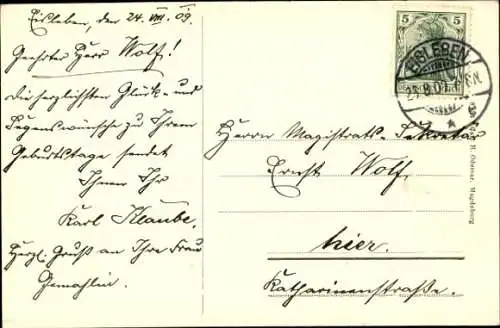 Eisleben, den 24. VIII. 09.
Geehrter Herr Wolf!
Die herzlichsten Glück- und
Segenswünsche zu Ihrem
Geburtstage sendet
Ihnen Ihr
Karl Klaube.
Herzl. Gruß an Ihre Frau
Gemahlin.
5 5
EISLEBEN
Herrn Magistrats-Sekretär
Ernst Wolf,
hier.
Katharinenstraße.
Magdeburg